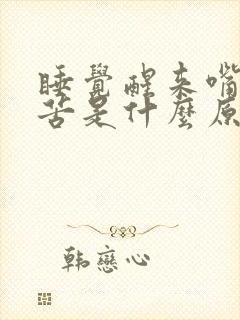 睡覺醒來嘴
苦是什麼原
韓戀心